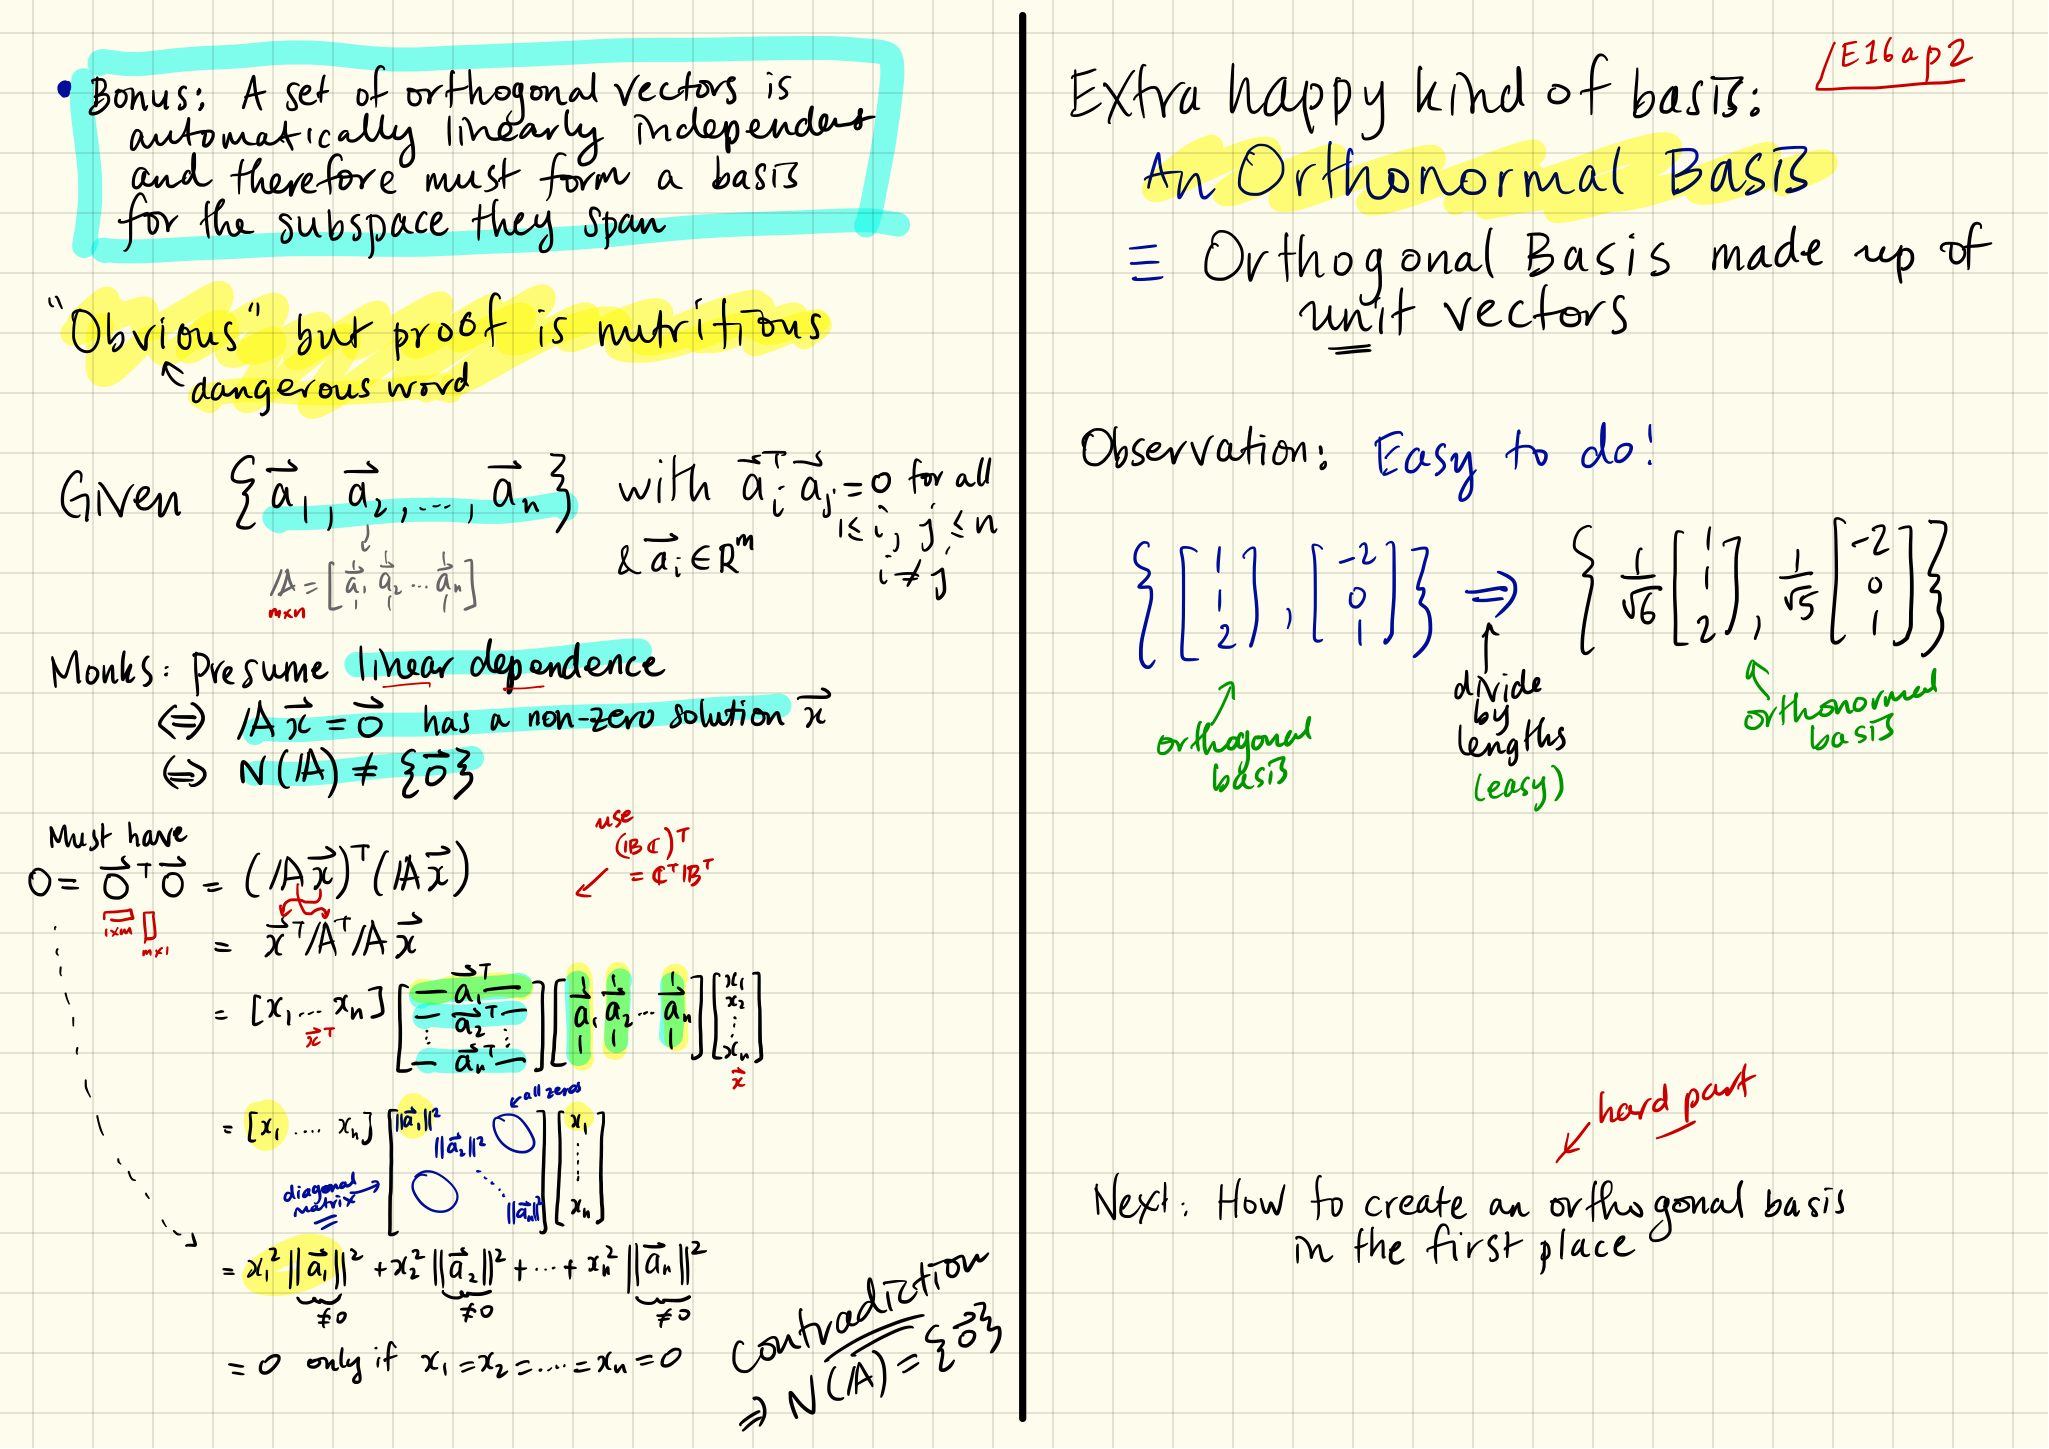 • Bonus: A set of orthogonal vectors is
automatically linearly independent
and therefore must form a basis
for the subspace they span
"Obvious" but proof is nutritious
↖ dangerous word
Given {a⃗₁, a⃗₂, ..., a⃗ₙ} with a⃗ᵢᵀ a⃗ⱼ = 0 for all
1 ≤ i, j ≤ n
i ≠ j
& a⃗ᵢ ∈ Rᵐ
A = [a⃗₁ a⃗₂ ... a⃗ₙ]
m×n
Monks: Presume linear dependence
⟺ A x⃗ = 0⃗ has a non-zero solution x⃗
⟺ N(A) ≠ {0⃗}
Must have
0 = 0⃗ᵀ 0⃗ = (A x⃗)ᵀ (A x⃗)
1×m m×1
use
(BC)ᵀ
= CᵀBᵀ
= x⃗ᵀ Aᵀ A x⃗
= [x₁ ... xₙ] [— a⃗₁ᵀ — — a⃗₂ᵀ — ⋮ — a⃗ₙᵀ —] [a⃗₁ a⃗₂ ... a⃗ₙ] [x₁ x₂ ⋮ xₙ]
x⃗ᵀ x⃗
← all zeros
= [x₁ .... xₙ] [||a⃗₁||² ||a⃗₂||² ⋱ ||a⃗ₙ||²] [x₁ ⋮ xₙ]
diagonal
matrix →
= x₁² ||a⃗₁||² + x₂² ||a⃗₂||² + ... + xₙ² ||a⃗ₙ||²
≠0 ≠0 ≠0
= 0 only if x₁ = x₂ = .... = xₙ = 0
Contradiction
⇒ N(A) = {0⃗}
E16ap2
Extra happy kind of basis:
An Orthonormal Basis
≡ Orthogonal Basis made up of
unit vectors
Observation: Easy to do!
{[1 1 2], [-2 0 1]} ⇒ {1/√6 [1 1 2], 1/√5 [-2 0 1]}
orthogonal
basis
divide
by
lengths
(easy)
orthonormal
basis
hard part
Next: How to create an orthogonal basis
in the first place